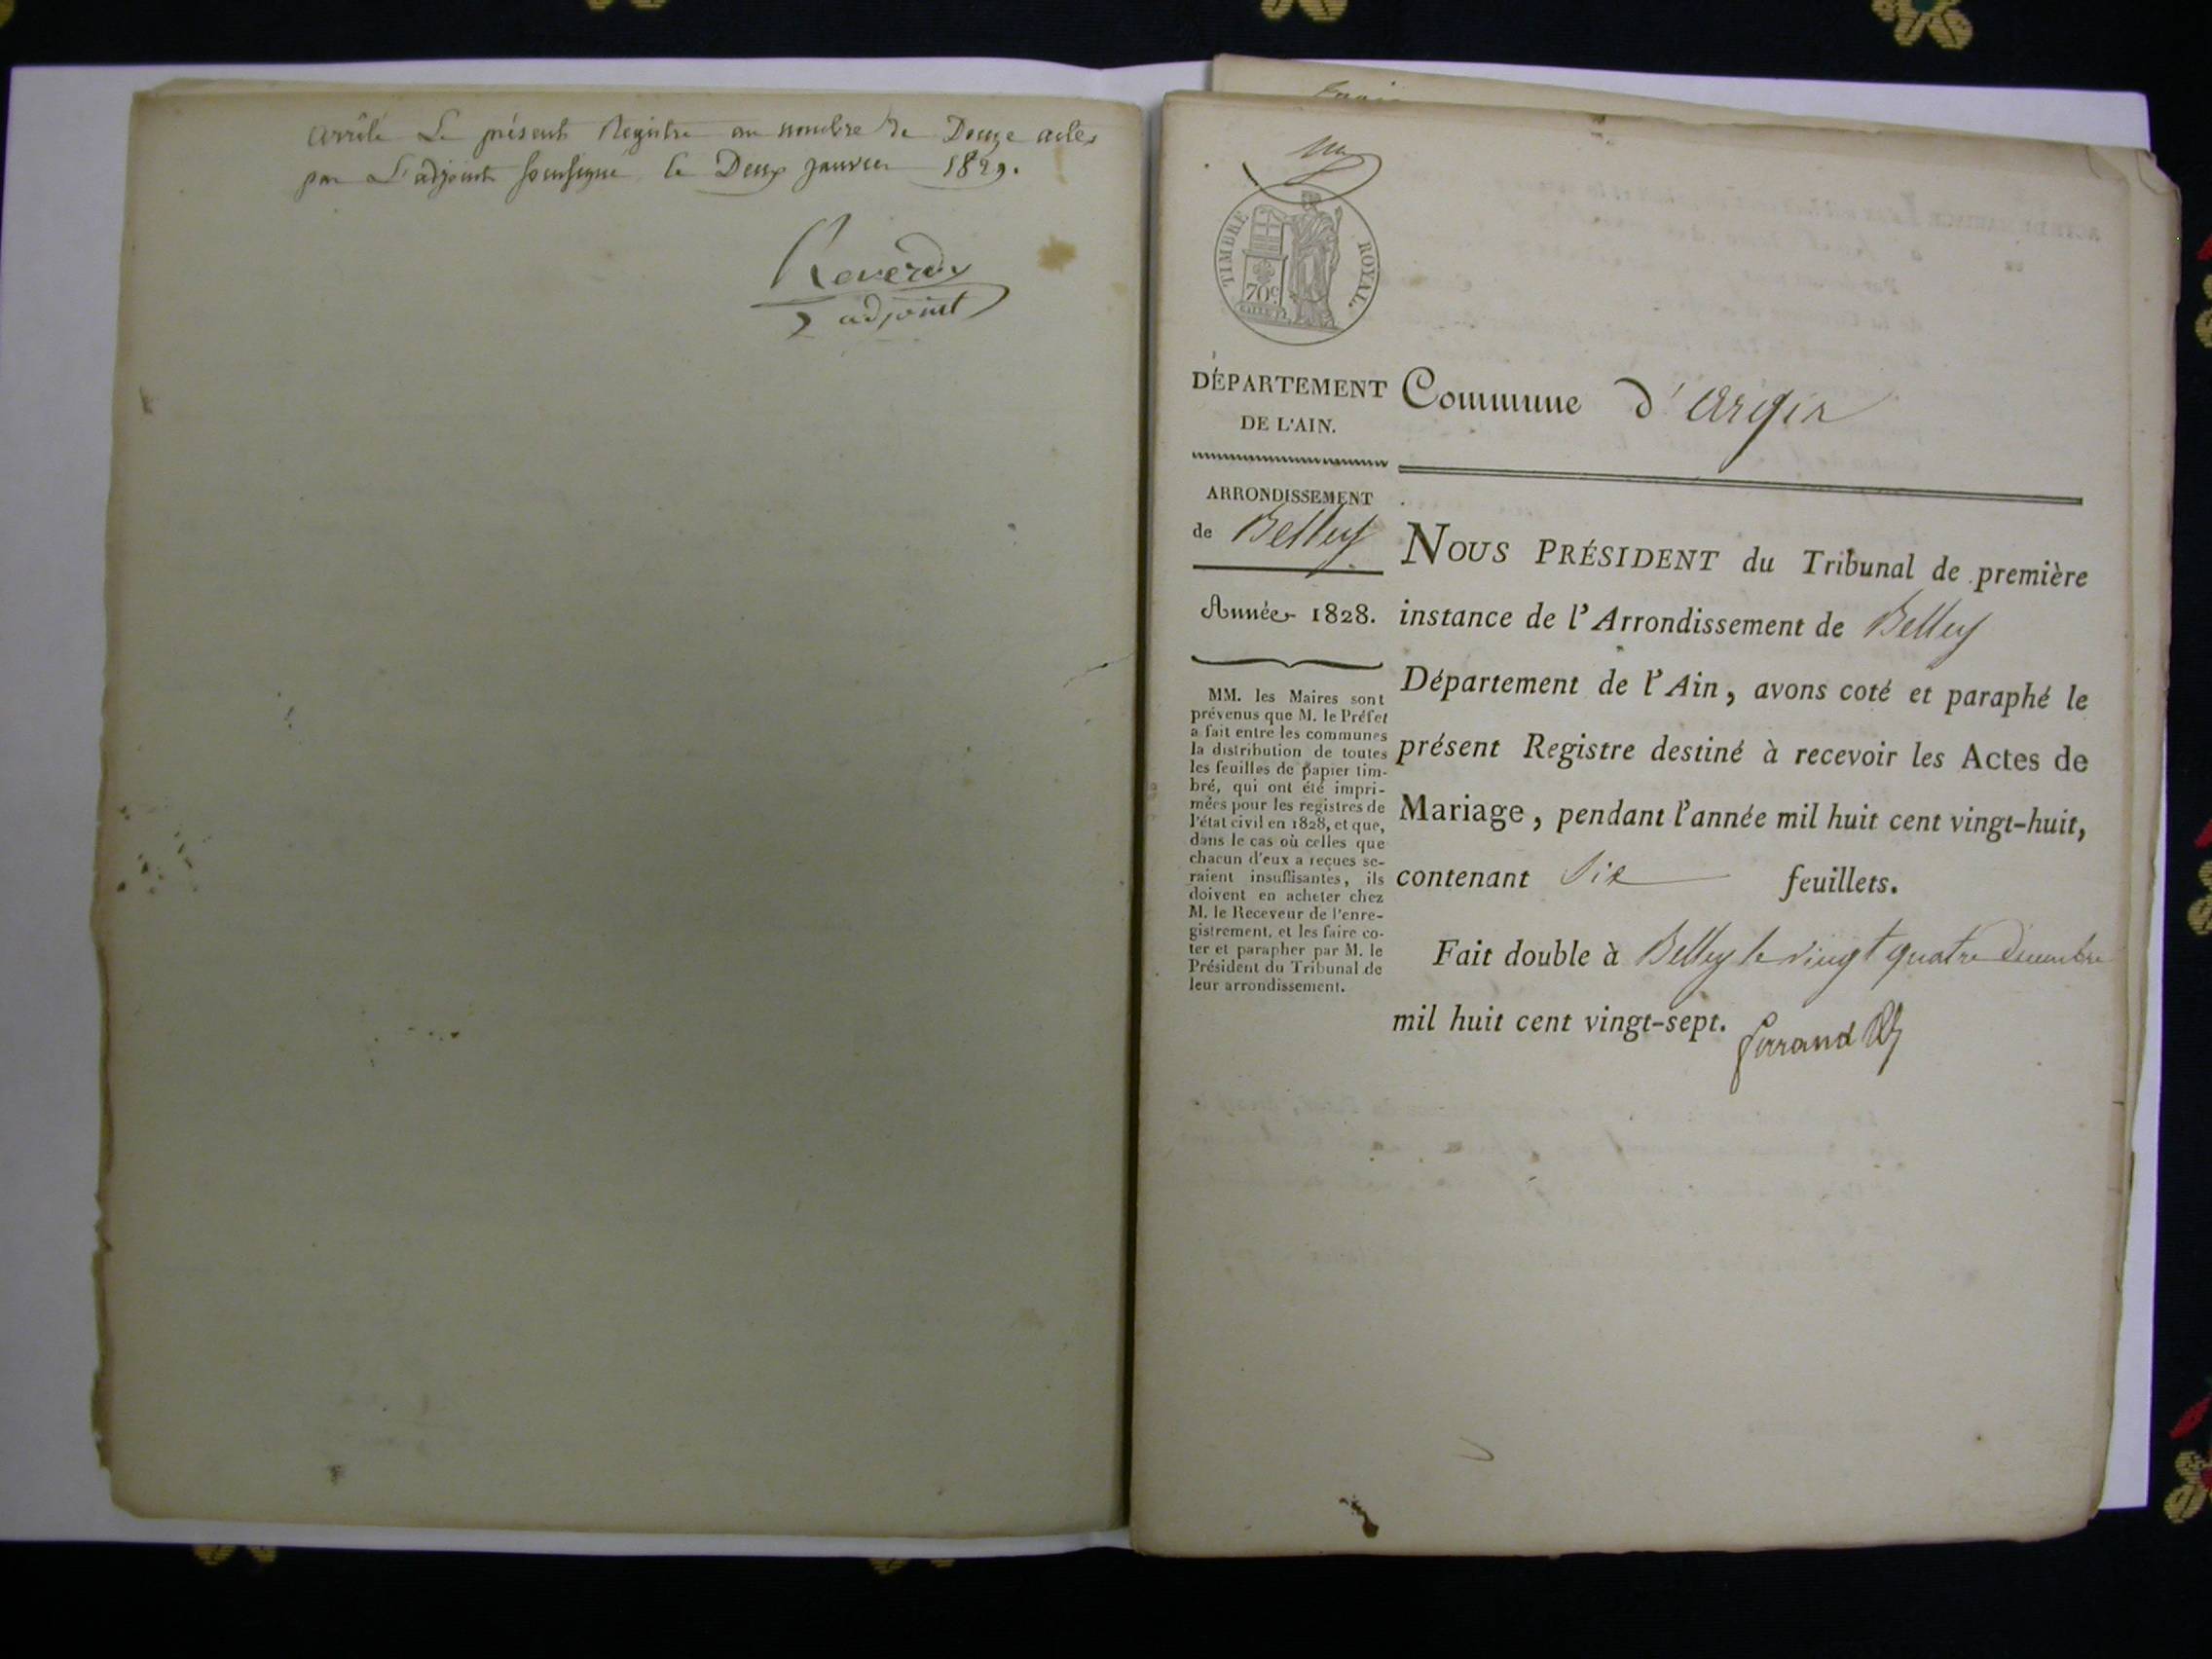 arrêté Le présent Registre au nombre de Douze actes
par L'adjoint soussigné le Deux janvier 1829.
Reverdy
adjoint
TIMBRE ROYAL.
70c
DÉPARTEMENT
DE L'AIN.
ARRONDISSEMENT
de Belley
Année 1828.
MM. les Maires sont
prévenus que M. le Préfet
a fait entre les communes
la distribution de toutes
les feuilles de papier tim-
bré, qui ont été impri-
mées pour les registres de
l'état civil en 1828, et que,
dans le cas où celles que
chacun d'eux a reçues se-
raient insuffisantes, ils
doivent en acheter chez
M. le Receveur de l'enre-
gistrement, et les faire co-
ter et parapher par M. le
Président du Tribunal de
leur arrondissement.
Commune d'argis
NOUS PRÉSIDENT du Tribunal de première
instance de l'Arrondissement de Belley
Département de l'Ain, avons coté et paraphé le
présent Registre destiné à recevoir les Actes de
Mariage, pendant l'année mil huit cent vingt-huit,
contenant Six feuillets.
Fait double à Belley le vingt quatre Décembre
mil huit cent vingt-sept.
Ferrand